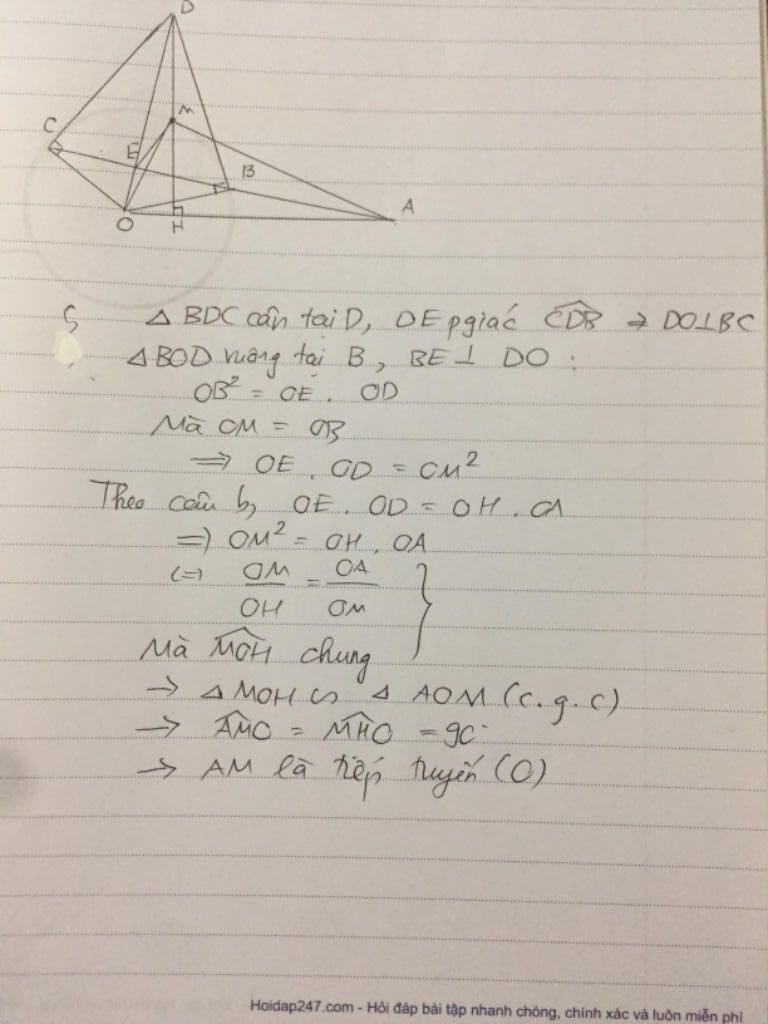 D
M
C
E
B
A
O
H
ς △ BDC cân tại D, DE pgiác CDB̂ ⇒ DO⊥BC
△BOD vuông tại B, BE⊥ DO :
OB² = OE . OD
Mà OM = OB
⇒ OE . OD = OM²
Theo câu b, OE . OD = OH . OA
⇒ OM² = OH . OA
(=) OM/OH = OA/OM
Mà MOĤ chung
→ △ MOH ∽ △ AOM (c.g.c)
→ AMÔ = MHÔ = 90°
→ AM là tiếp tuyến (O)
Hoidap247.com - Hỏi đáp bài tập nhanh chóng, chính xác và luôn miễn phí